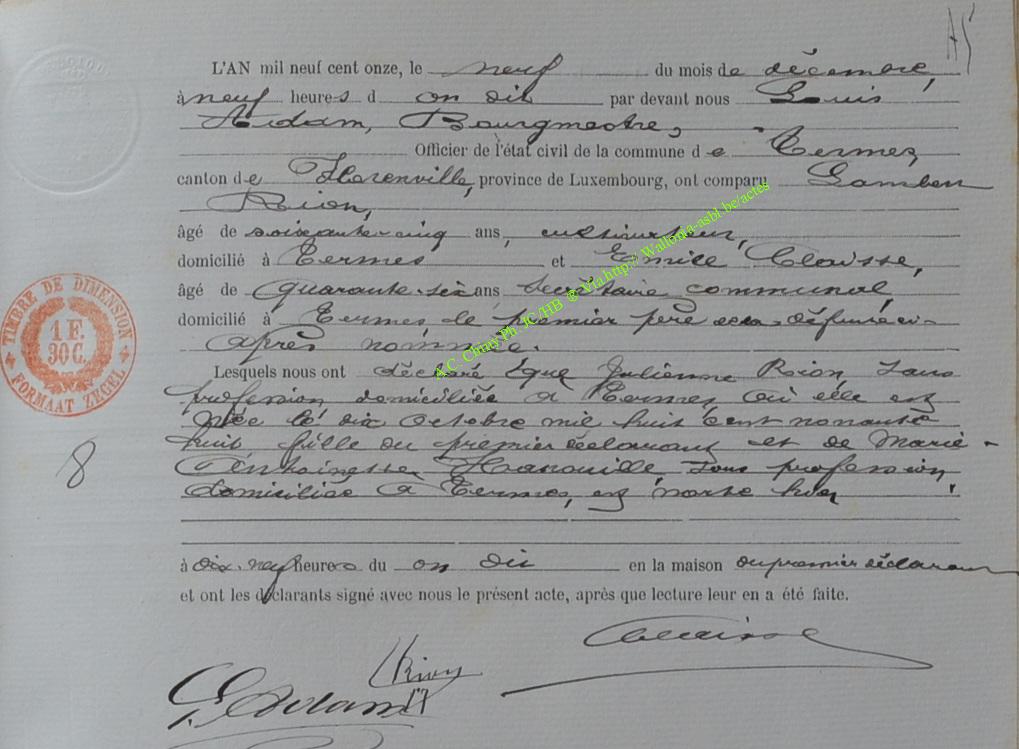 L'AN mil neuf cent onze, le neuf du mois de décembre,
à neuf heures d on dit par devant nous Louis
Adam, Bourgmestre,
Officier de l'état civil de la commune de Termes,
canton de Florenville, province de Luxembourg, ont comparu Lambert
Rion,
âgé de soixante-cinq ans, cultivateur,
domicilié à Termes et Emile Claisse,
âgé de quarante-six ans, secrétaire communal,
domicilié à Termes, le premier père de la défunte ci-
après nommée.
Lesquels nous ont déclaré que Julienne Rion, sans
profession domiciliée à Termes où elle est
née le dix octobre mil huit cent nonante
huit fille du premier déclarant et de Marie-
sans profession
domiciliée à Termes, est morte hier
à dix-neuf heures du on dit en la maison du premier déclarant
et ont les déclarants signé avec nous le présent acte, après que lecture leur en a été faite.
Claisse
LRion
L Adam
TIMBRE DE DIMENSION
1 F.
30 C.
FORMAAT ZEGEL
8
A.C. Chiny Ph. JC/HB @ Via http:// Wallonia-asbl.be/actes